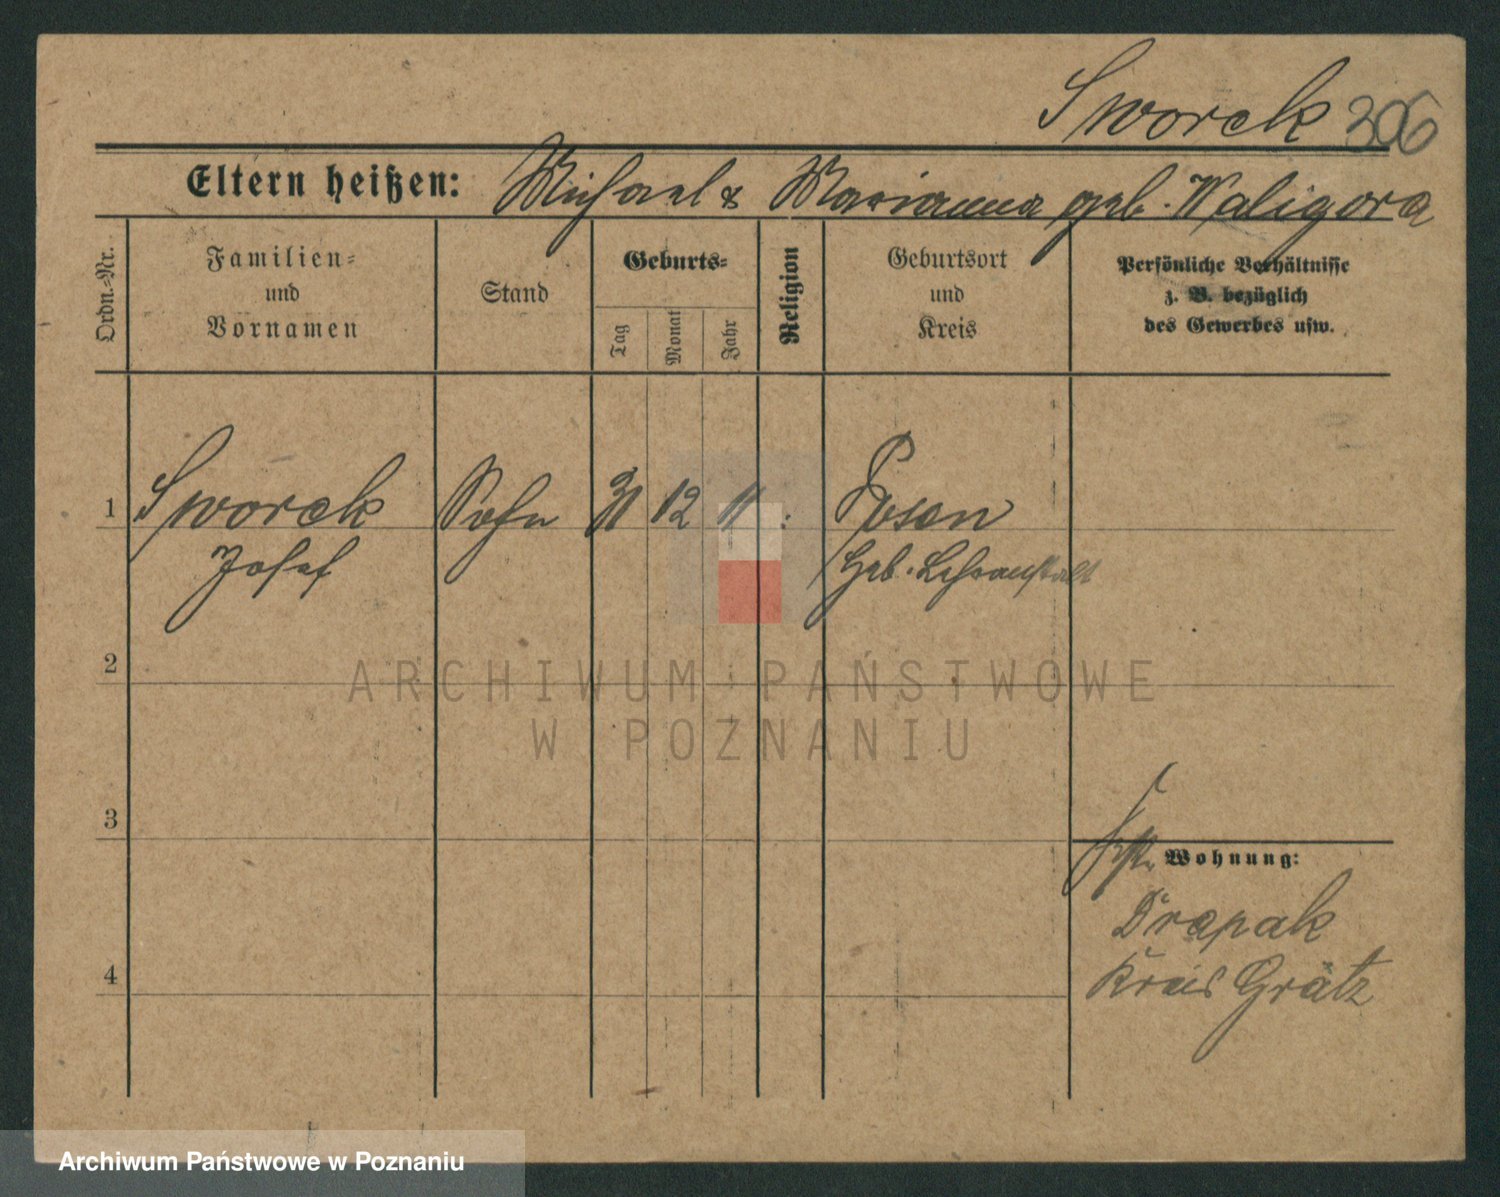 Sworek 306
Eltern heißen: Michael & Marianna geb. Waligora
Ordn.-Nr.
Familien-
und
Vornamen
Stand
Geburts-
Tag
Monat
Jahr
Religion
Geburtsort
und
Kreis
Persönliche Verhältnisse
z. B. bezüglich
des Gewerbes usw.
1 Sworek Sohn 31 12 11 : Posen
Josef Heb. Lehranstalt
2
ARCHIWUM PAŃSTWOWE
W POZNANIU
3
Wohnung:
Drapak
4 Kreis Grätz
Archiwum Państwowe w Poznaniu